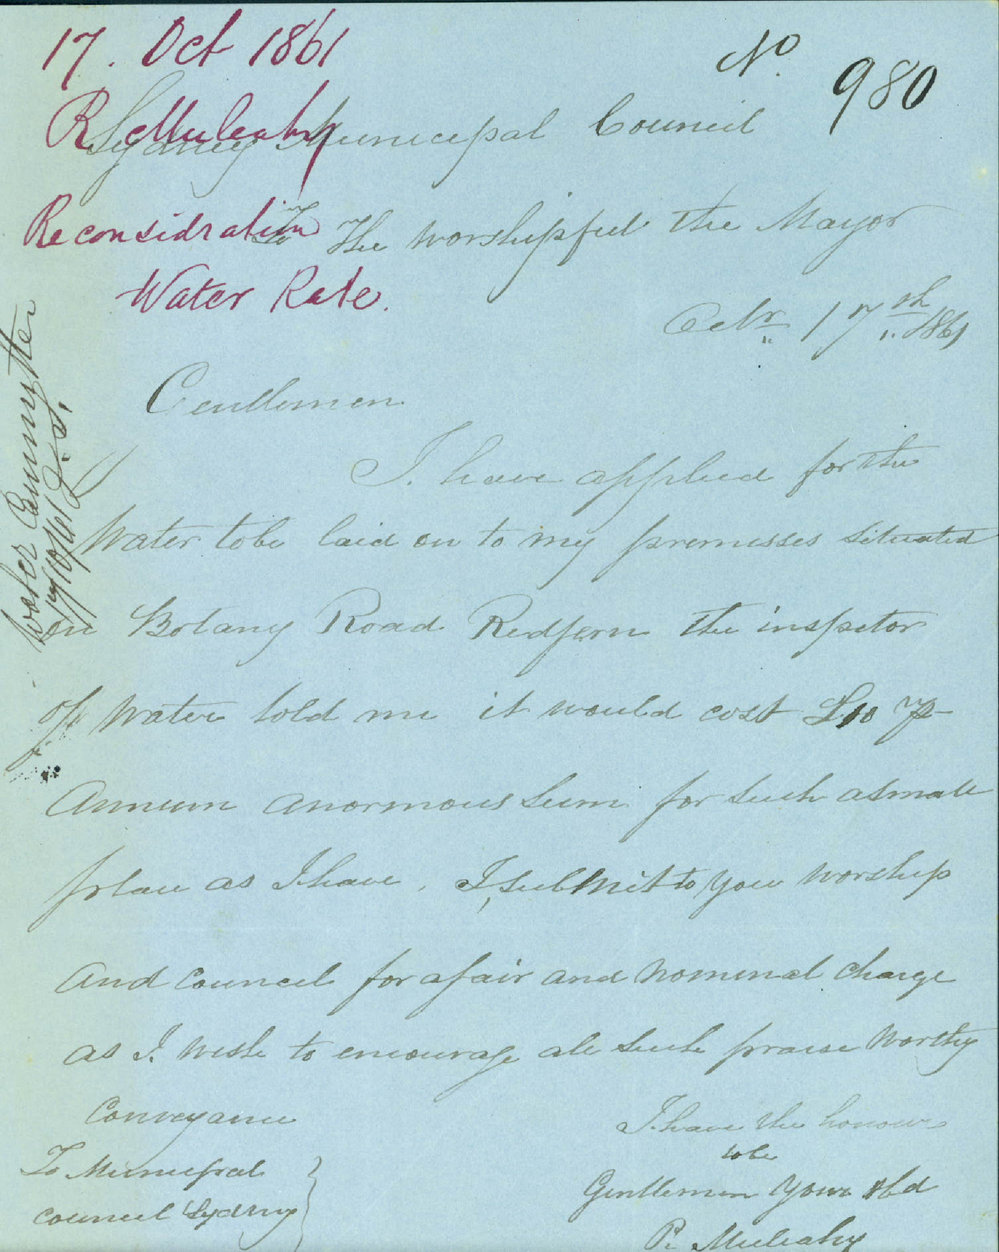 17. Oct 1861
No 980
R Mulcahy
Sydney Municipal Council
Reconsidration
To The worshipful the Mayor
Water Rate.
Octr 17th 1861
Water Committee
17/10/61 J.S.
Gentlemen
I have applied for the
Water tobe laid on to my premesses situated
on Botany Road Redfern the inspetor
of Water told me it would cost £10 pr
Annum anormous sum for such asmall
place as I have, I submit to your worship
and council for afair and nominal charge
as I wish to encourage all such praise worthy
Conveyance
I have the honour
tobe
To Municipal
Gentlemen your Obd
council Sydney
P. Mulcahy